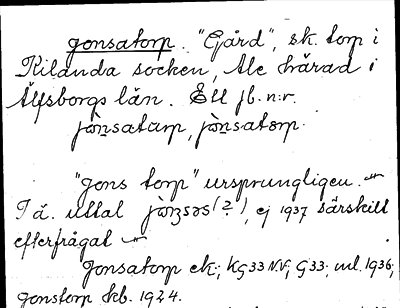 Jonsatorp. "Gård", sk. torp i
Kilanda socken, Ale härad i
Älfsborgs län. Ett jb.n:r.
jònsatårp, jònsatorp.
"Jons torp" ursprungligen.
I ä. uttal jònsəs(?), ej 1937 särskilt
efterfrågat
Jonsatorp ek; KG33 N.V; G33; ml. 1936;
Jonstorp kb. 1924.